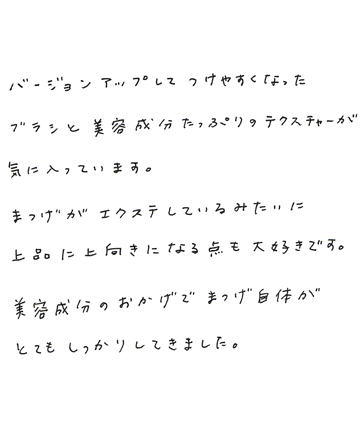 バージョンアップして つけやすくなった
ブラシと美容成分たっぷりのテクスチャーが
気に入っています。
まつげが エクステしているみたいに
上品に上向きになる点も大好きです。
美容成分のおかげで まつげ自体が
とてもしっかりしてきました。